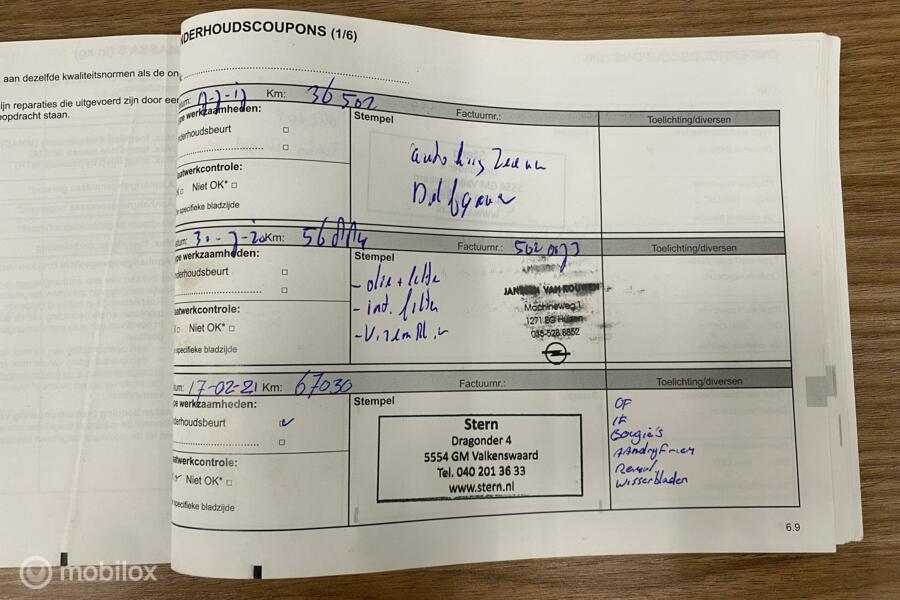 NDERHOUDSCOUPONS (1/6)
aan dezelfde kwaliteitsnormen als de on
ijn reparaties die uitgevoerd zijn door eer
eopdracht staan.
Km: 36502
pe werkzaamheden:
nderhoudsbeurt
Stempel
Factuurnr.:
Toelichting/diversen
aatwerkcontrole:
Niet OK*
specifieke bladzijde
Delfgauw
tum: 30-7-20 Km:
pe werkzaamheden:
nderhoudsbeurt
Stempel
Factuurnr.:
Toelichting/diversen
- olie + filter
- int. filter
JANSSEN VAN KOUWEN
Machineweg 1
1271 EG Huizen
035-528 8852
aatwerkcontrole:
Niet OK*
specifieke bladzijde
tum: 17-02-21 Km: 67030
pe werkzaamheden:
nderhoudsbeurt
Stempel
Factuurnr.:
Toelichting/diversen
Stern
Dragonder 4
5554 GM Valkenswaard
Tel. 040 201 36 33
www.stern.nl
OF
IF
Bougie's
Wisserbladen
aatwerkcontrole:
Niet OK*
specifieke bladzijde
6.9
mobilox